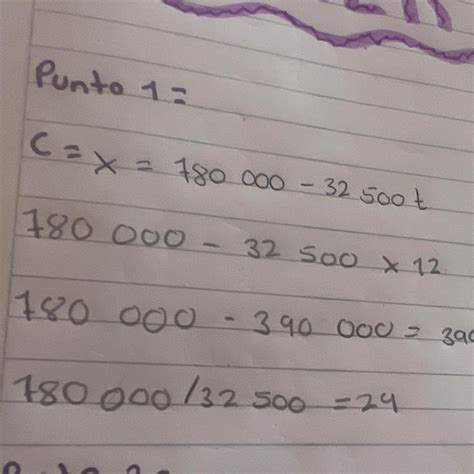 Punto 1=
C = x = 780 000 - 32 500t
780 000 - 32 500 x 12
780 000 - 390 000 = 390
780 000 / 32 500 = 24